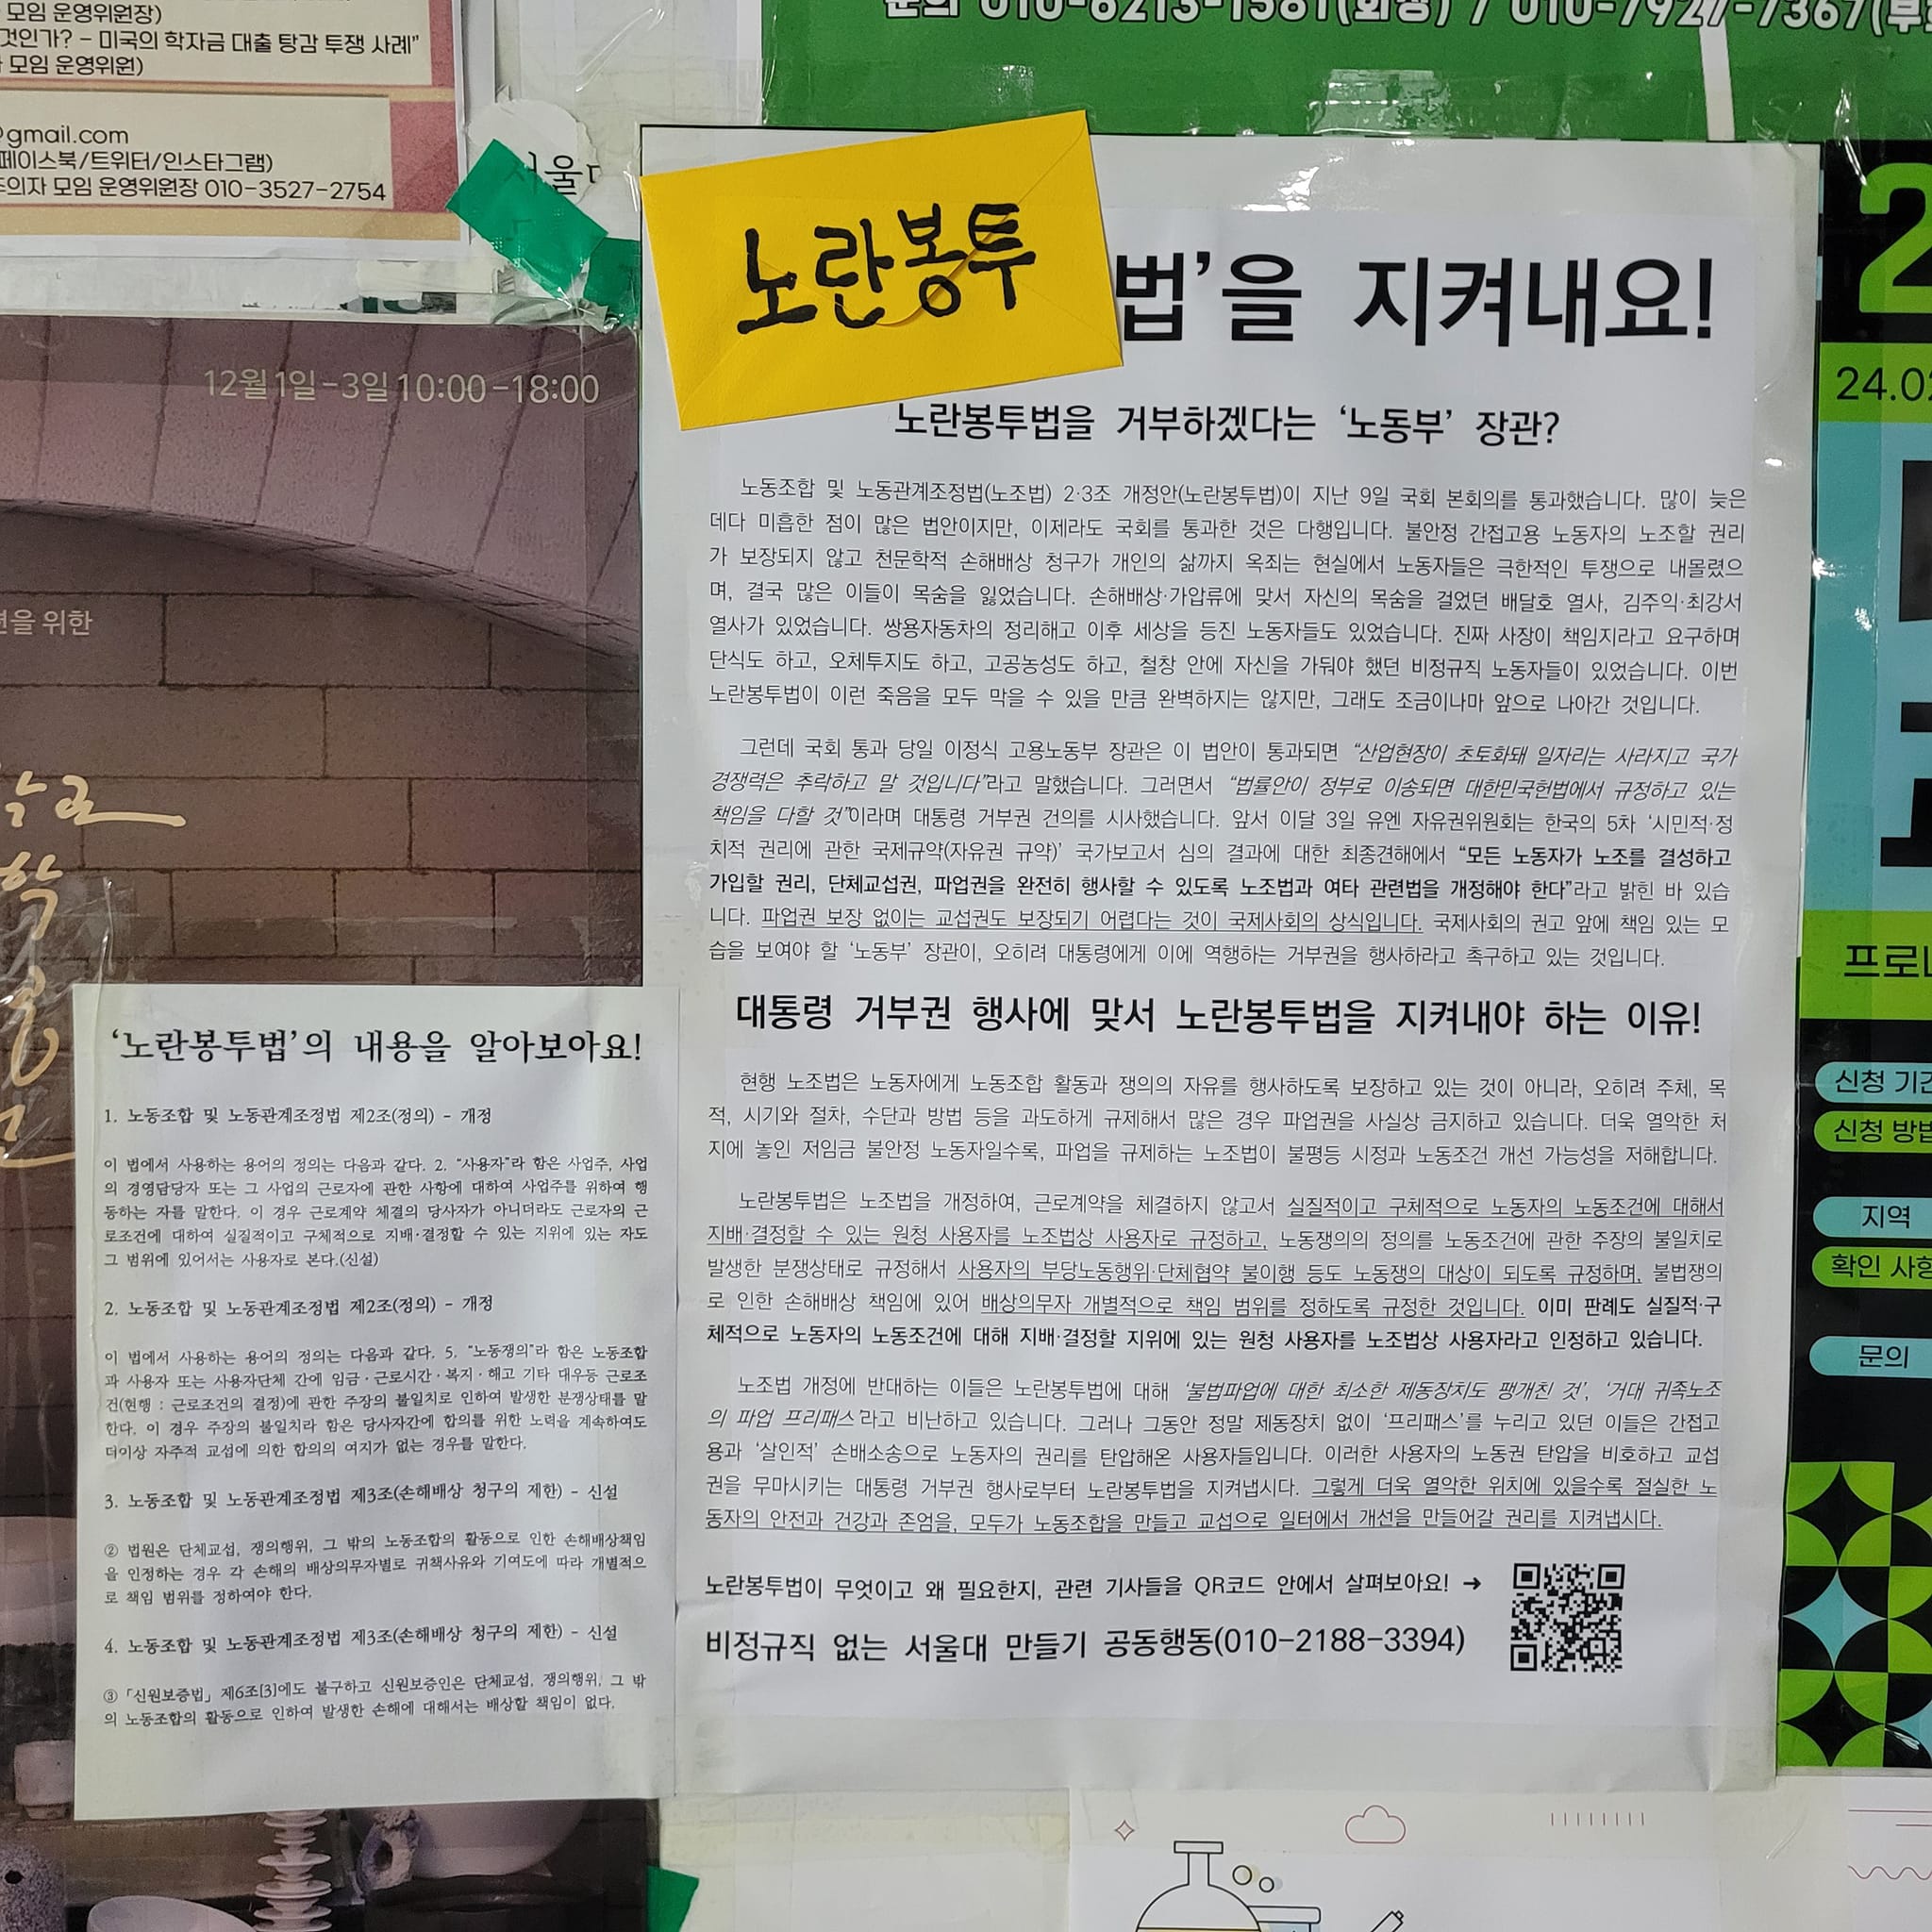 모임 운영위원장)
것인가? - 미국의 학자금 대출 탕감 투쟁 사례"
모임 운영위원)
@gmail.com
페이스북/트위터/인스타그램)
모임 운영위원장 010-3527-2754
문의 010-6213-1581(회장) / 010-7927-7367(부
서울대
12월 1일-3일 10:00-18:00
을 위한
노란봉투
법'을 지켜내요!
노란봉투법을 거부하겠다는 '노동부' 장관?
노동조합 및 노동관계조정법(노조법) 2·3조 개정안(노란봉투법)이 지난 9일 국회 본회의를 통과했습니다. 많이 늦은
데다 미흡한 점이 많은 법안이지만, 이제라도 국회를 통과한 것은 다행입니다. 불안정 간접고용 노동자의 노조할 권리
가 보장되지 않고 천문학적 손해배상 청구가 개인의 삶까지 옥죄는 현실에서 노동자들은 극한적인 투쟁으로 내몰렸으
며, 결국 많은 이들이 목숨을 잃었습니다. 손해배상·가압류에 맞서 자신의 목숨을 걸었던 배달호 열사, 김주익·최강서
열사가 있었습니다. 쌍용자동차의 정리해고 이후 세상을 등진 노동자들도 있었습니다. 진짜 사장이 책임지라고 요구하며
단식도 하고, 오체투지도 하고, 고공농성도 하고, 철창 안에 자신을 가둬야 했던 비정규직 노동자들이 있었습니다. 이번
노란봉투법이 이런 죽음을 모두 막을 수 있을 만큼 완벽하지는 않지만, 그래도 조금이나마 앞으로 나아간 것입니다.
그런데 국회 통과 당일 이정식 고용노동부 장관은 이 법안이 통과되면 "산업현장이 초토화돼 일자리는 사라지고 국가
경쟁력은 추락하고 말 것입니다"라고 말했습니다. 그러면서 "법률안이 정부로 이송되면 대한민국헌법에서 규정하고 있는
책임을 다할 것"이라며 대통령 거부권 건의를 시사했습니다. 앞서 이달 3일 유엔 자유권위원회는 한국의 5차 '시민적·정
치적 권리에 관한 국제규약(자유권 규약)' 국가보고서 심의 결과에 대한 최종견해에서 "모든 노동자가 노조를 결성하고
가입할 권리, 단체교섭권, 파업권을 완전히 행사할 수 있도록 노조법과 여타 관련법을 개정해야 한다"라고 밝힌 바 있습
니다. 파업권 보장 없이는 교섭권도 보장되기 어렵다는 것이 국제사회의 상식입니다. 국제사회의 권고 앞에 책임 있는 모
습을 보여야 할 '노동부' 장관이, 오히려 대통령에게 이에 역행하는 거부권을 행사하라고 촉구하고 있는 것입니다.
대통령 거부권 행사에 맞서 노란봉투법을 지켜내야 하는 이유!
현행 노조법은 노동자에게 노동조합 활동과 쟁의의 자유를 행사하도록 보장하고 있는 것이 아니라, 오히려 주체, 목
적, 시기와 절차, 수단과 방법 등을 과도하게 규제해서 많은 경우 파업권을 사실상 금지하고 있습니다. 더욱 열악한 처
지에 놓인 저임금 불안정 노동자일수록, 파업을 규제하는 노조법이 불평등 시정과 노동조건 개선 가능성을 저해합니다.
노란봉투법은 노조법을 개정하여, 근로계약을 체결하지 않고서 실질적이고 구체적으로 노동자의 노동조건에 대해서
지배·결정할 수 있는 원청 사용자를 노조법상 사용자로 규정하고, 노동쟁의의 정의를 노동조건에 관한 주장의 불일치로
발생한 분쟁상태로 규정해서 사용자의 부당노동행위·단체협약 불이행 등도 노동쟁의 대상이 되도록 규정하며, 불법쟁의
로 인한 손해배상 책임에 있어 배상의무자 개별적으로 책임 범위를 정하도록 규정한 것입니다. 이미 판례도 실질적·구
체적으로 노동자의 노동조건에 대해 지배·결정할 지위에 있는 원청 사용자를 노조법상 사용자라고 인정하고 있습니다.
노조법 개정에 반대하는 이들은 노란봉투법에 대해 '불법파업에 대한 최소한 제동장치도 팽개친 것', '거대 귀족노조
의 파업 프리패스'라고 비난하고 있습니다. 그러나 그동안 정말 제동장치 없이 '프리패스'를 누리고 있던 이들은 간접고
용과 '살인적' 손배소송으로 노동자의 권리를 탄압해온 사용자들입니다. 이러한 사용자의 노동권 탄압을 비호하고 교섭
권을 무마시키는 대통령 거부권 행사로부터 노란봉투법을 지켜냅시다. 그렇게 더욱 열악한 위치에 있을수록 절실한 노
동자의 안전과 건강과 존엄을, 모두가 노동조합을 만들고 교섭으로 일터에서 개선을 만들어갈 권리를 지켜냅시다.
노란봉투법이 무엇이고 왜 필요한지, 관련 기사들을 QR코드 안에서 살펴보아요! →
비정규직 없는 서울대 만들기 공동행동(010-2188-3394)
'노란봉투법'의 내용을 알아보아요!
1. 노동조합 및 노동관계조정법 제2조(정의) - 개정
이 법에서 사용하는 용어의 정의는 다음과 같다. 2. "사용자"라 함은 사업주, 사업
의 경영담당자 또는 그 사업의 근로자에 관한 사항에 대하여 사업주를 위하여 행
동하는 자를 말한다. 이 경우 근로계약 체결의 당사자가 아니더라도 근로자의 근
로조건에 대하여 실질적이고 구체적으로 지배·결정할 수 있는 지위에 있는 자도
그 범위에 있어서는 사용자로 본다.(신설)
2. 노동조합 및 노동관계조정법 제2조(정의) - 개정
이 법에서 사용하는 용어의 정의는 다음과 같다. 5. "노동쟁의"라 함은 노동조합
과 사용자 또는 사용자단체 간에 임금·근로시간·복지·해고 기타 대우등 근로조
건(현행 : 근로조건의 결정)에 관한 주장의 불일치로 인하여 발생한 분쟁상태를 말
한다. 이 경우 주장의 불일치라 함은 당사자간에 합의를 위한 노력을 계속하여도
더이상 자주적 교섭에 의한 합의의 여지가 없는 경우를 말한다.
3. 노동조합 및 노동관계조정법 제3조(손해배상 청구의 제한) - 신설
② 법원은 단체교섭, 쟁의행위, 그 밖의 노동조합의 활동으로 인한 손해배상책임
을 인정하는 경우 각 손해의 배상의무자별로 귀책사유와 기여도에 따라 개별적으
로 책임 범위를 정하여야 한다.
4. 노동조합 및 노동관계조정법 제3조(손해배상 청구의 제한) - 신설
③「신원보증법」 제6조[3]에도 불구하고 신원보증인은 단체교섭, 쟁의행위, 그 밖
의 노동조합의 활동으로 인하여 발생한 손해에 대해서는 배상할 책임이 없다.
2
24.02
신청 기간
신청 방법
지역
확인 사항
문의